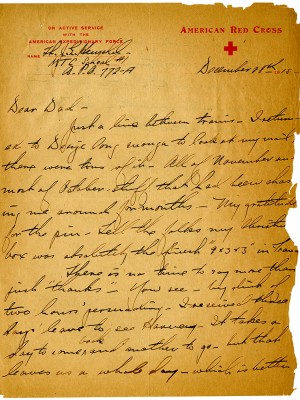 ON ACTIVE SERVICE
WITH THE
AMERICAN EXPEDITIONARY FORCE
AMERICAN RED CROSS
NAME
A.P.O. 772-A
December 28th, 1918
Dear Dad -
Just a line between trains - I return-
ed to Dijon long enough to look at my mail
there were tons of it - All of November and
most of October - stuff that had been chas-
ing me around for months - My gratitude
for the pin - Tell the folks my Christmas
box was absolutely the finest "9x3x3" in France
There is no time to say more than
just "thanks" - You see - by dint of
two hours' persuading - I received three
days' leave to see Harvey - It takes a
day to come back and another to go - but that
leaves us a whole day - which is better